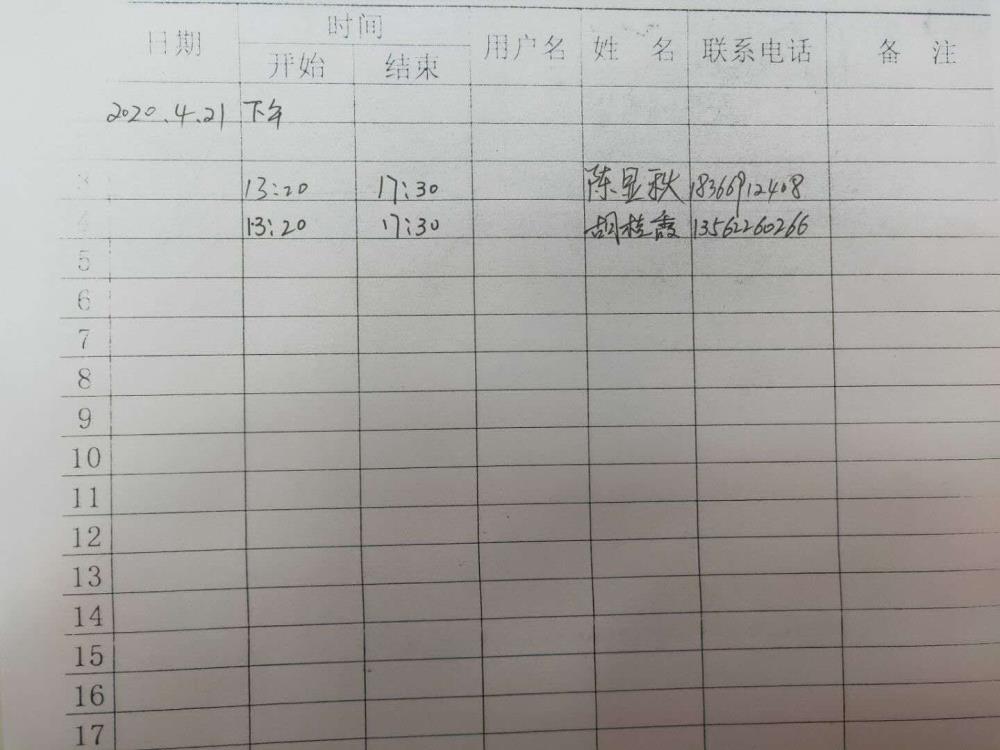 日期 时间 用户名 姓 名 联系电话 备 注
开始 结束
2020.4.21 下午
3 13:20 17:30 陈显秋 18366912408
4 13:20 17:30 胡桂霞 13562260266
5
6
7
8
9
10
11
12
13
14
15
16
17